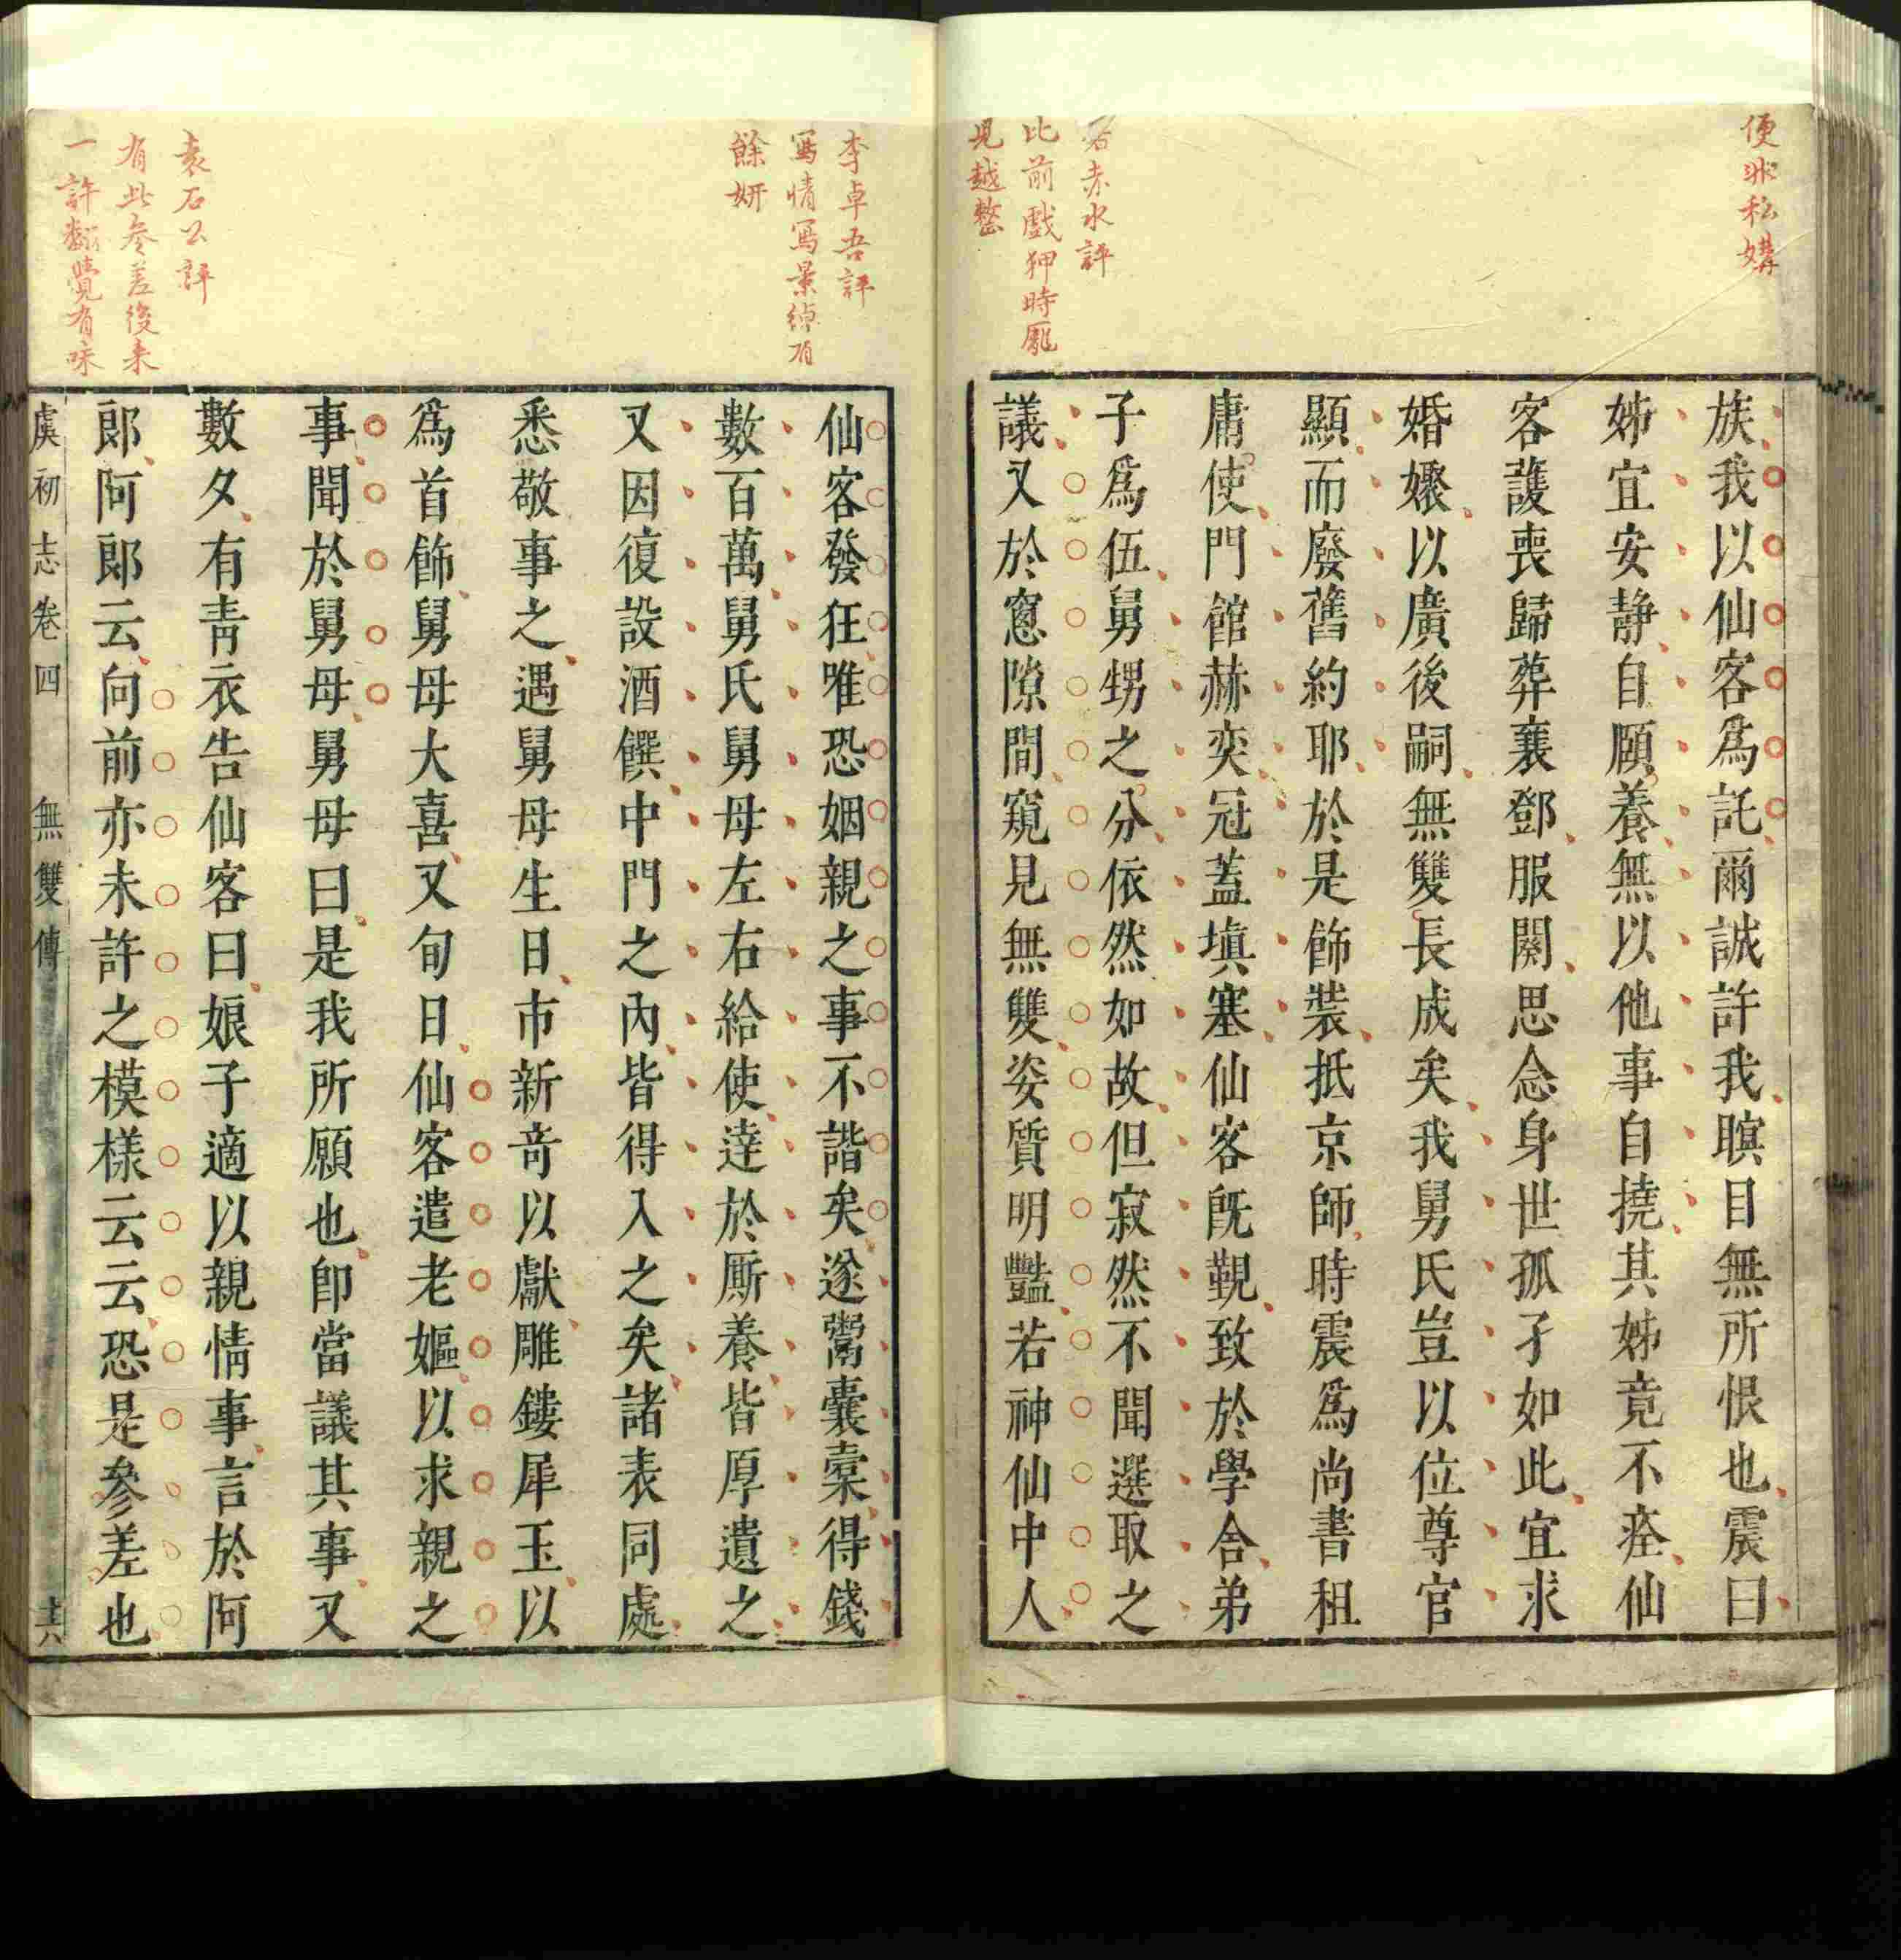 便非私媾
族我以仙客爲託爾誠許我瞑目無所恨也震曰
姊宜安靜自頤養無以他事自撓其姊竟不痊仙
客護喪歸葬襄鄧服闋思念身世孤孑如此宜求
婚媭以廣後嗣無雙長成矣我舅氏豈以位尊官
顯而廢舊約耶於是飾裝抵京師時震爲尚書租
庸使門館赫奕冠蓋塡塞仙客旣覲致於學舍弟
子爲伍舅甥之分依然如故但寂然不聞選取之
議又於窻隙間窺見無雙姿質明豔若神仙中人
赤水評
比前戲狎時龎
見越整
李卓吾評
寫情寫景綽有
餘妍
仙客發狂唯恐姻親之事不諧矣遂鬻囊槖得錢
數百萬舅氏舅母左右給使達於厮養皆厚遺之
又因復設酒饌中門之內皆得入之矣諸表同處
悉敬事之遇舅母生日市新奇以獻雕鏤犀玉以
爲首飾舅母大喜又旬日仙客遣老嫗以求親之
事聞於舅母舅母曰是我所願也卽當議其事又
數夕有靑衣告仙客曰娘子適以親情事言於阿
郎阿郎云向前亦未許之模樣云云恐是參差也
袁石公評
有此參差後来
一許翻覺有味
虞初志卷四 無雙傳 十六